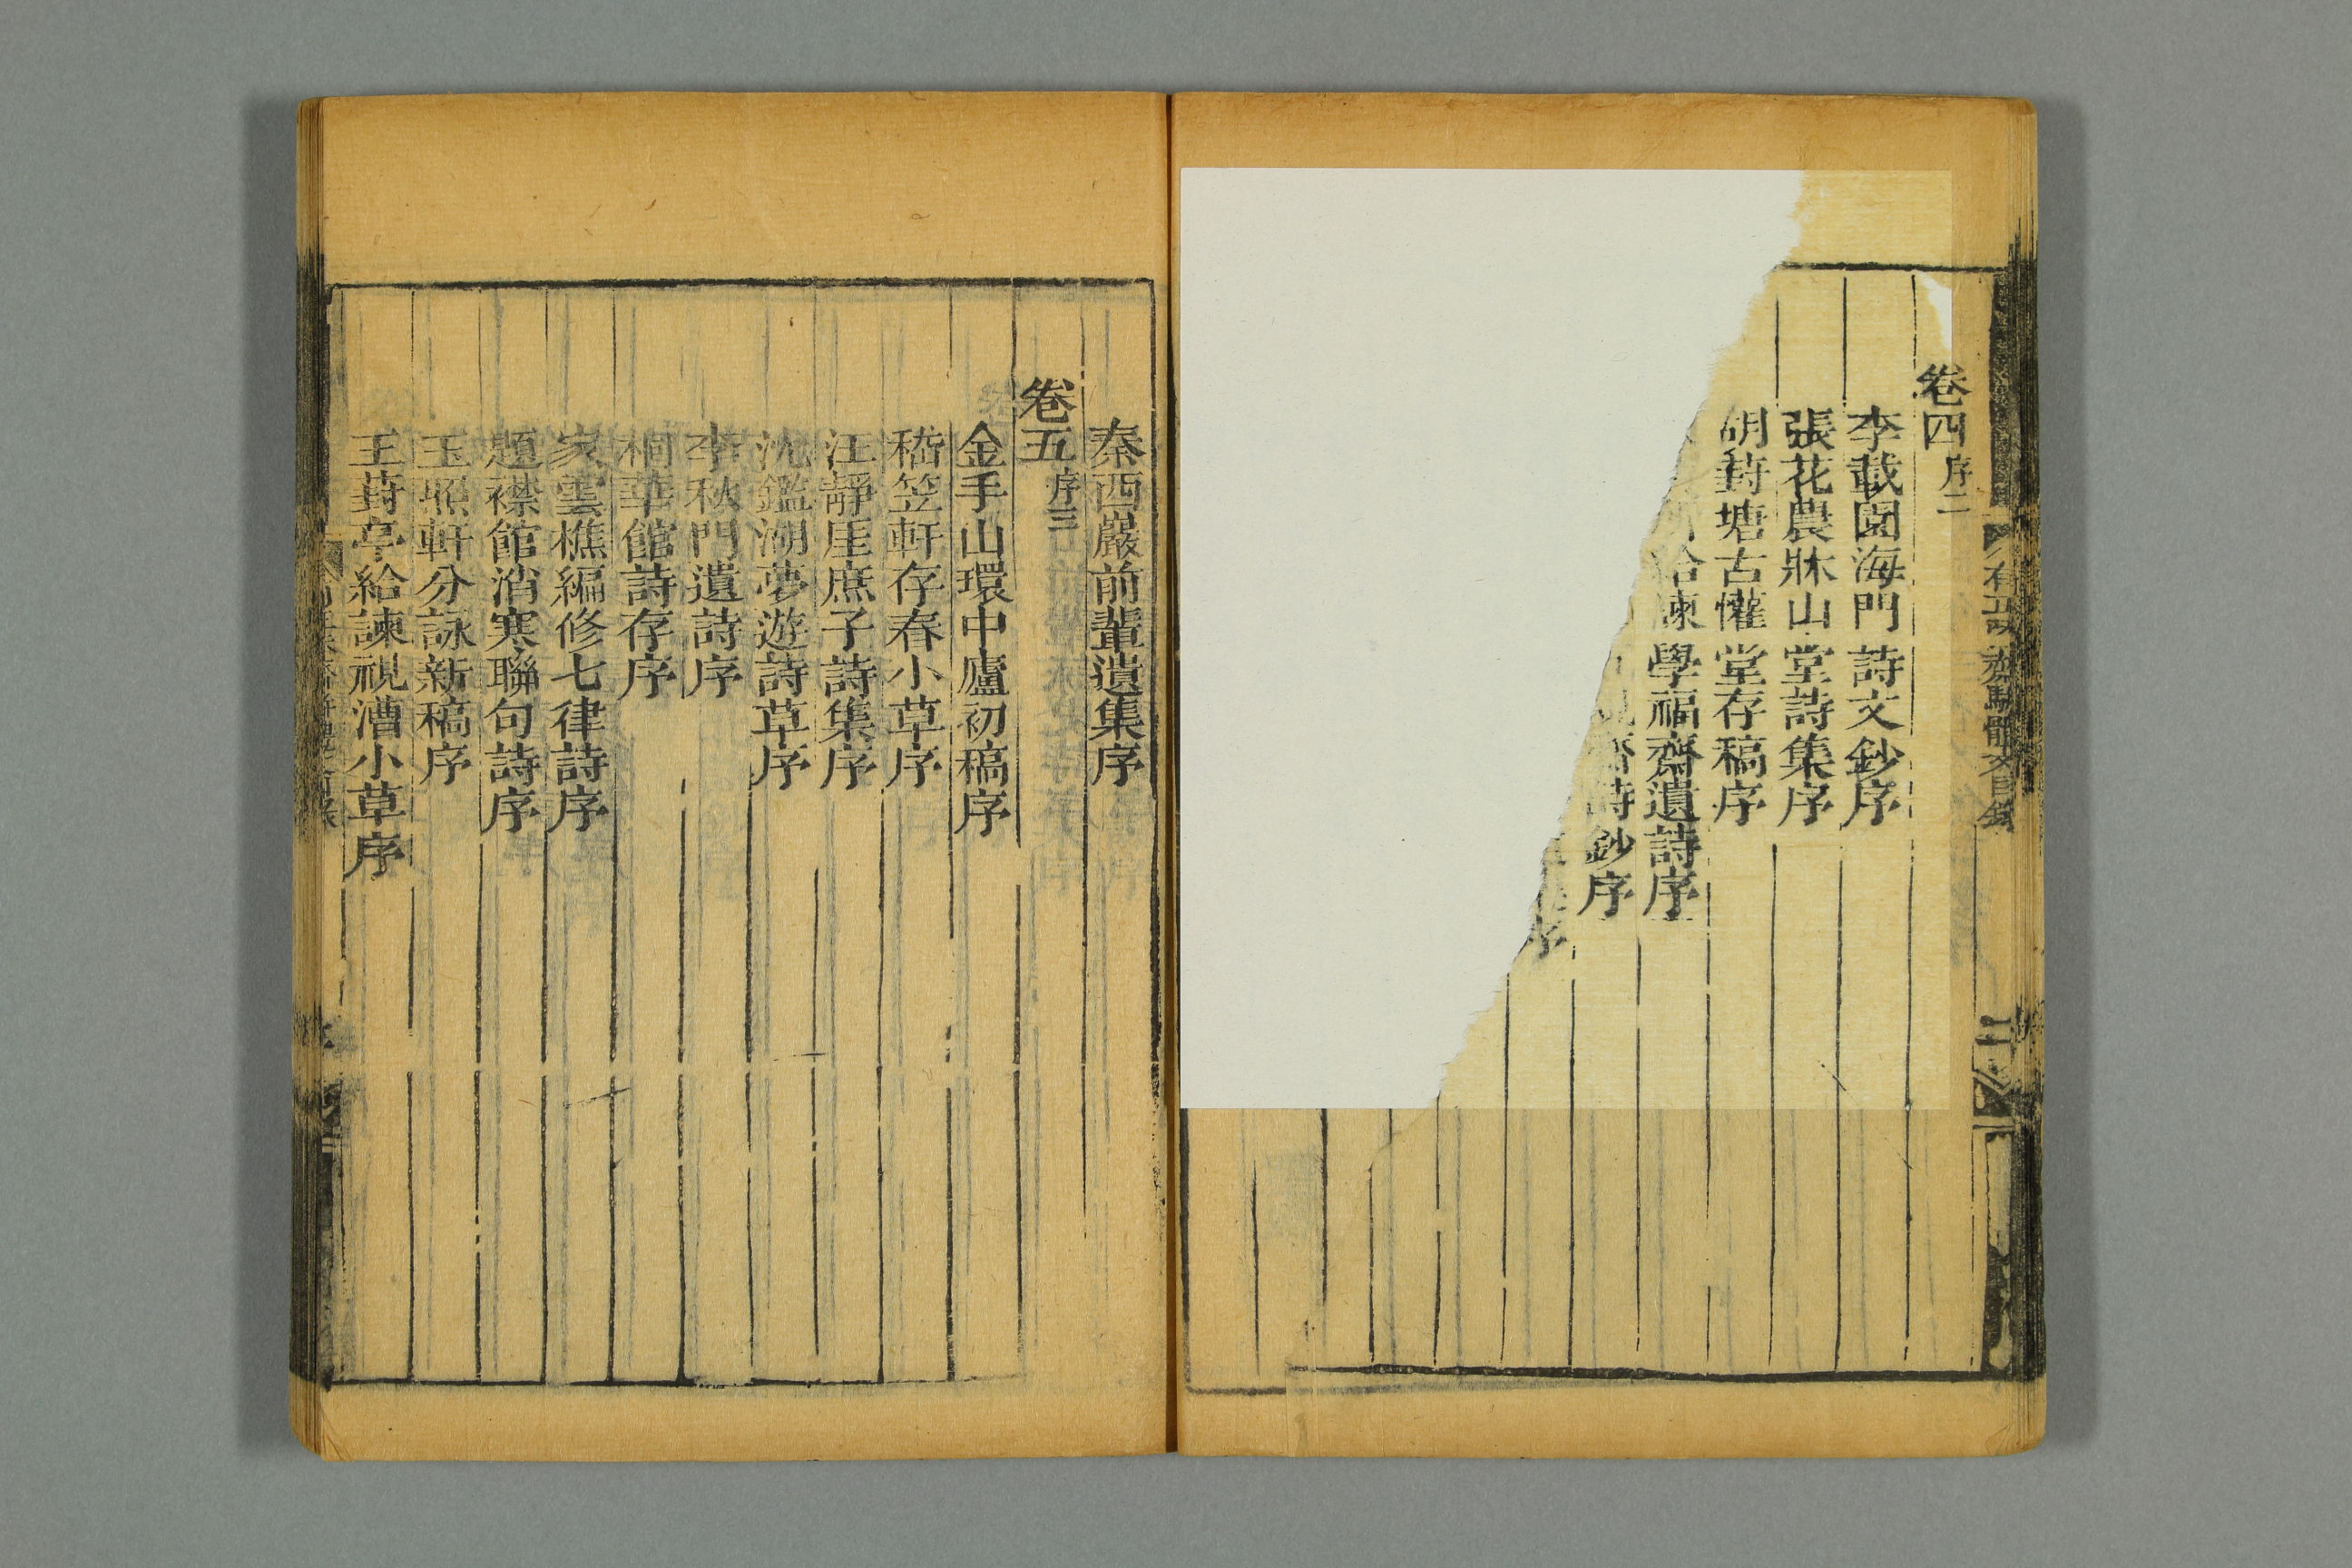 卷四 序二
李載園海門詩文鈔序
張花農牀山堂詩集序
胡葑塘古懽堂存稿序
給諫學福齋遺詩序
齋詩鈔序
序
秦西巖前輩遺集序
卷五 序三
金手山環中廬初稿序
嵇笠軒存春小草序
汪靜厓庶子詩集序
沈鑑湖夢遊詩草序
李秋門遺詩序
桐華館詩存序
家雲樵編修七律詩序
題襟館消寒聯句詩序
玉照軒分詠新稿序
王葑亭給諫視漕小草序